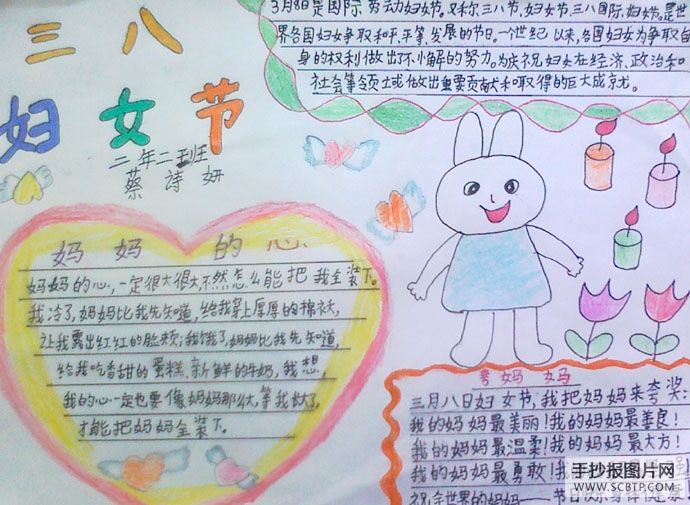 三八
妇女节
二年二班
蔡诗妍
3月8日是国际劳动妇女节。又称三八节,妇女节,三八国际妇女节。是世
界各国妇女争取和平、平等、发展的节日。一个世纪以来,各国妇女为争取自
身的权利做出了不小解的努力。为庆祝妇女在经济、政治和
社会等领土或做出重要贡献和取得的巨大成就。
妈妈的心
妈妈的心,一定很大很大不然怎么能把我全装下。
我冷了,妈妈比我先知道,给我穿上厚厚的棉衣,
让我露出红红的脸颊;我饿了妈妈比我先知道,
给我吃香甜的蛋糕、新鲜的牛奶,我想,
我的心一定也要像妈妈那么大,等我长大了,
才能把妈妈全装下。
夸妈妈
三月八日妇女节,我把妈妈来夸奖:
我的妈妈最美丽!我的妈妈最善良!
我的妈妈最温柔!我的妈妈最大方!
我的妈妈最勇敢!我
祝全世界的妈妈——节日快乐身体健康!
手抄报图片网
WWW.SCBTP.COM